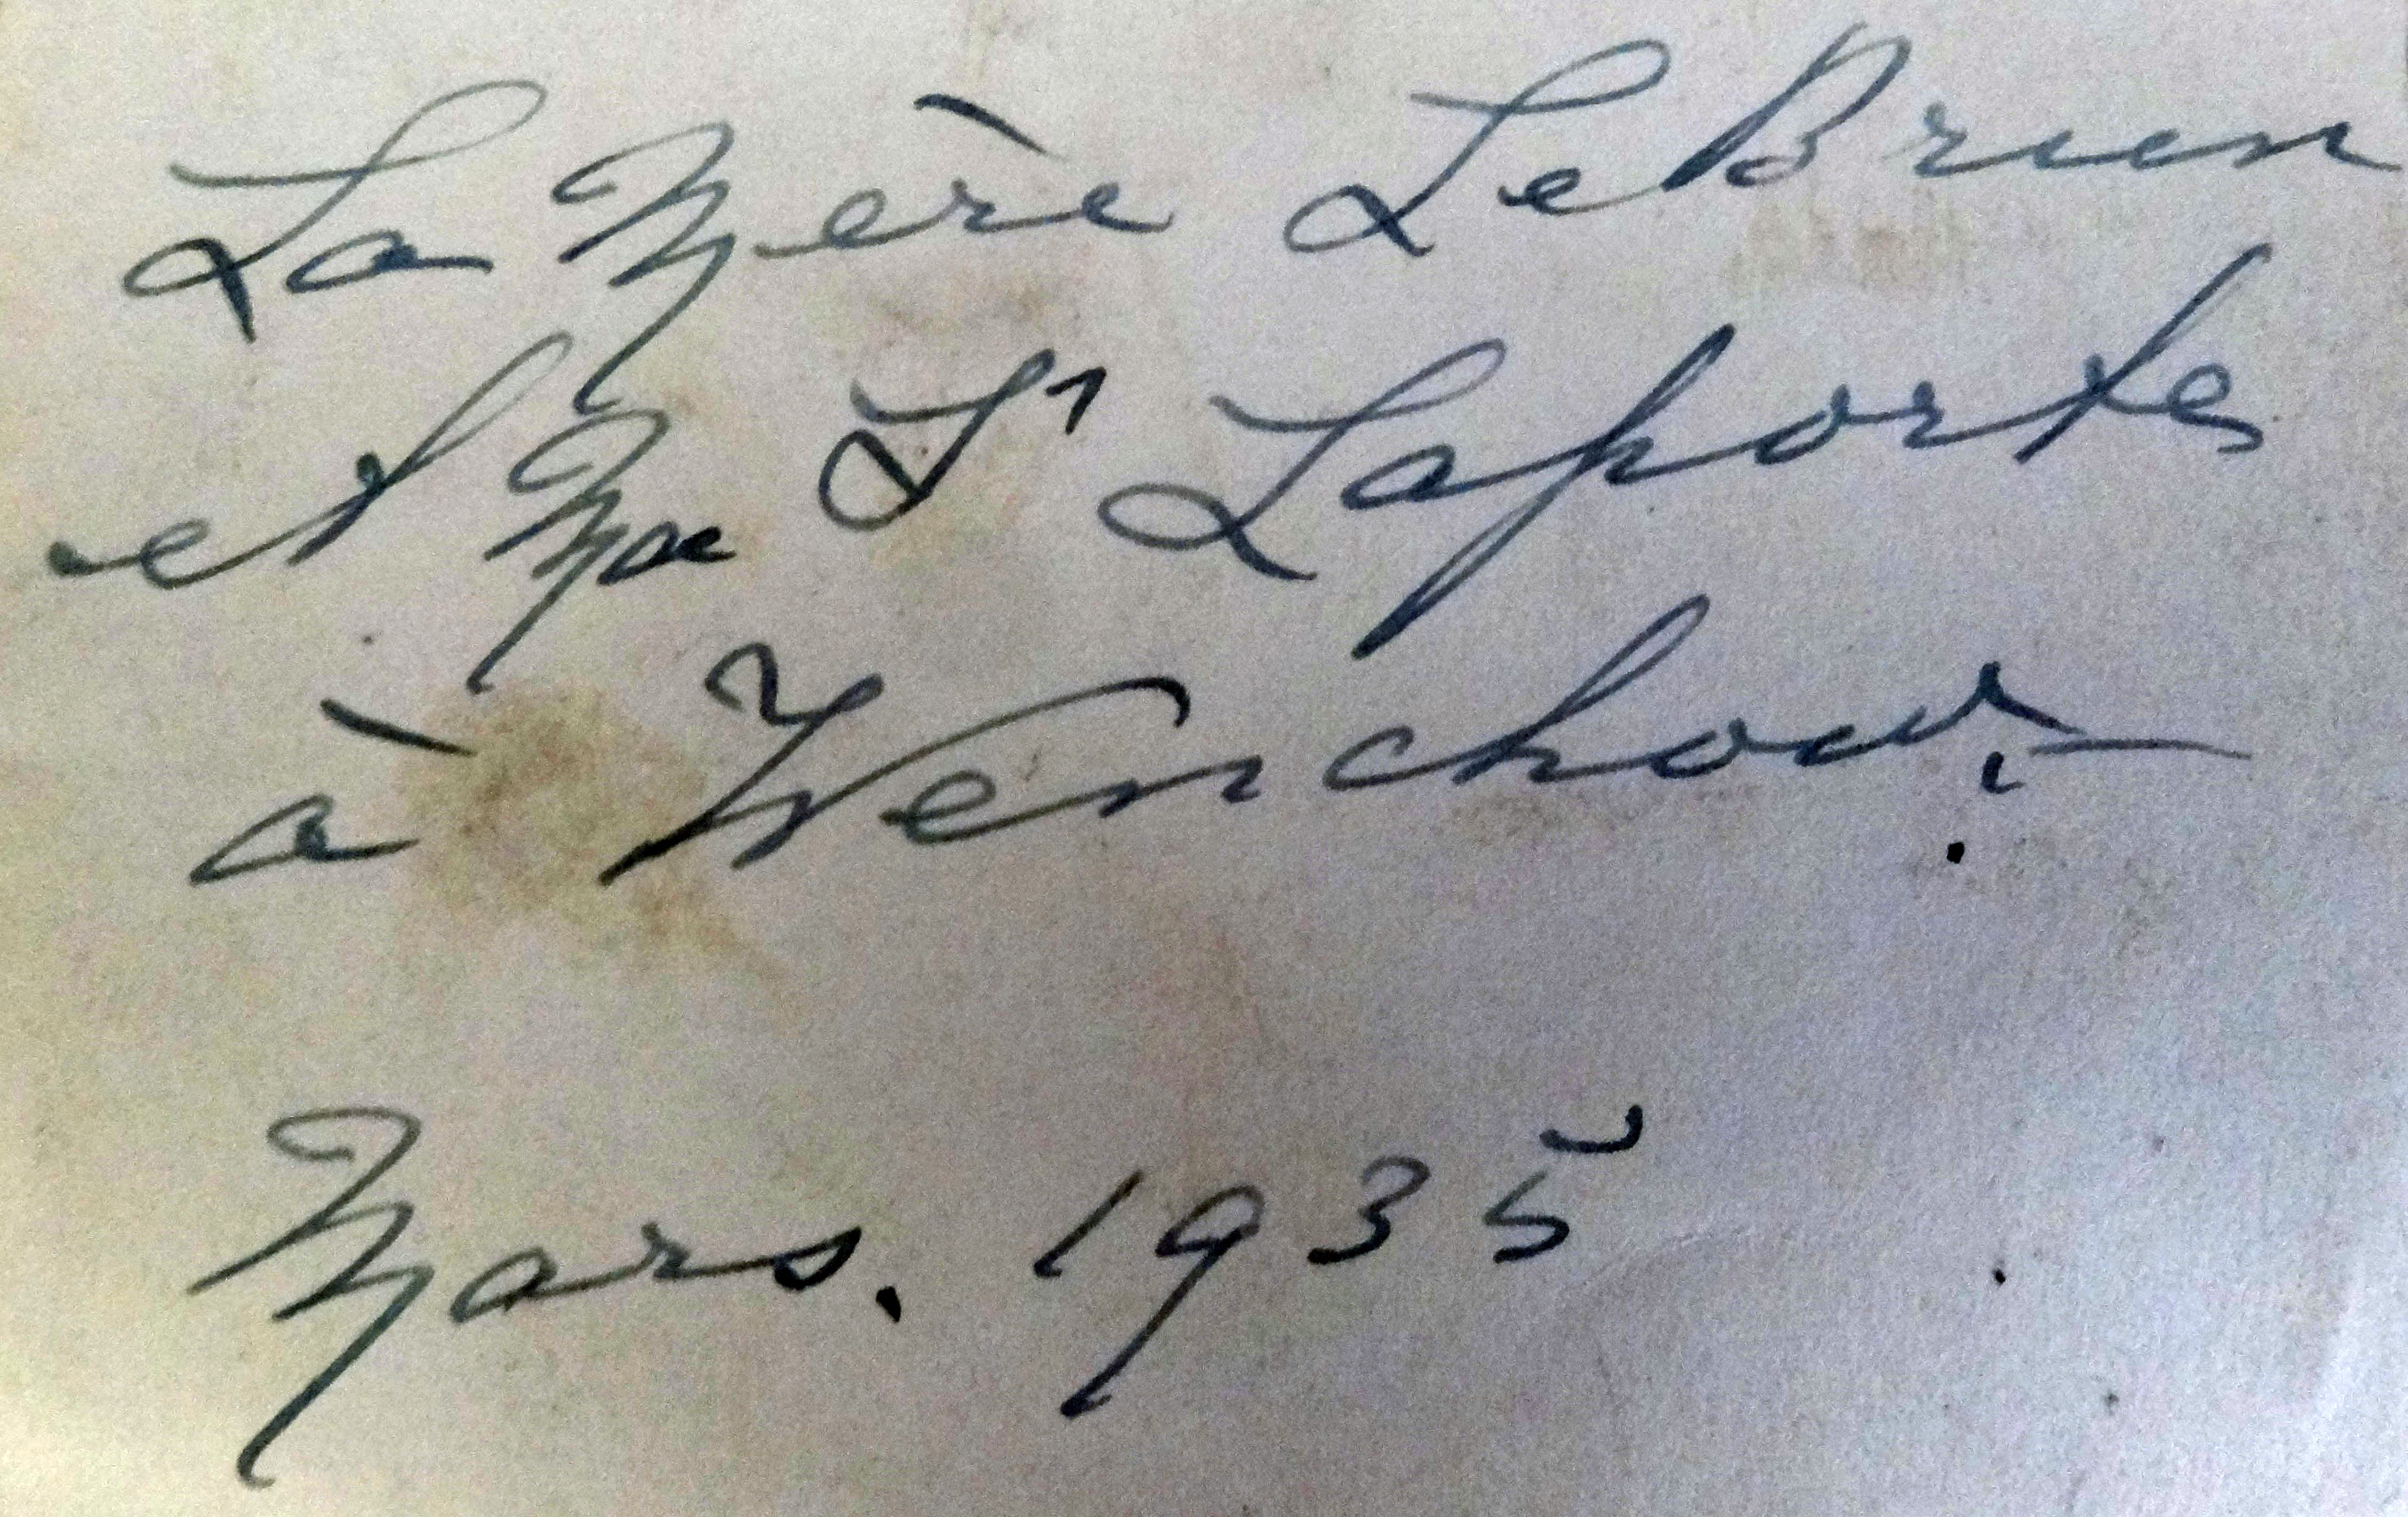 La Mère LeBrun
et Laporte
à Wenchow.
Mars. 1935